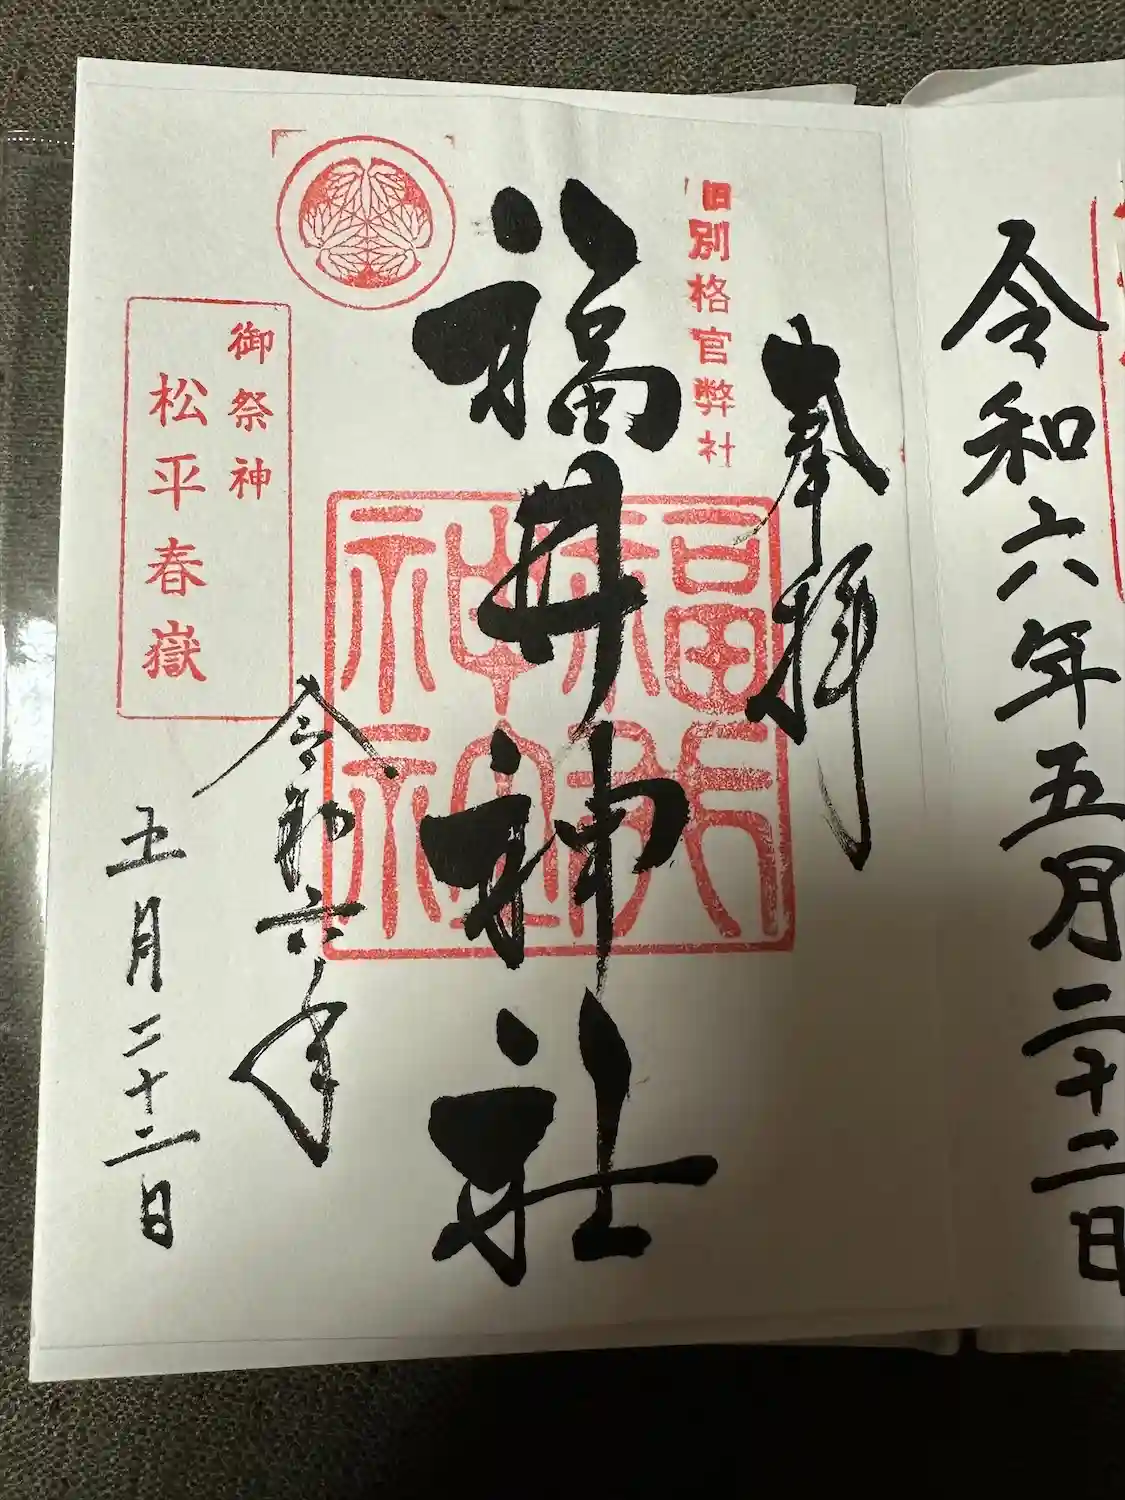 令和六年五月二十二日
奉拝
旧別格官弊社
福井神社
福井神社
御祭神
松平春嶽
令和六年
五月二十二日